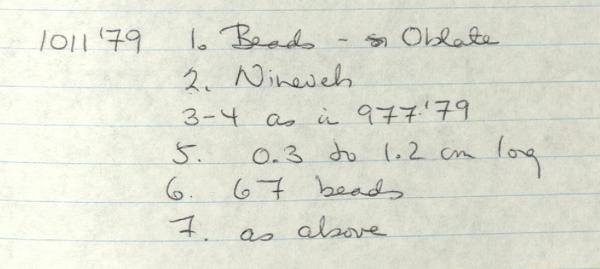 1011 '79 1. Beads - Oblate
2. Nineveh
3-4 as in 977.'79
5. 0.3 to 1.2 cm long
6. 67 beads
7. as above